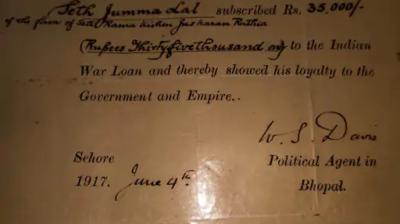 Seth Jumma Lal subscribed Rs. 35,000/-
of the firm of Seth Rama kishen Jaskaran Ruthia
(Rupees Thirtyfivethousand only) to the Indian
War Loan and thereby showed his loyalty to the
Government and Empire..
W. S. Davis
Sehore Political Agent in
1917. June 4th. Bhopal.